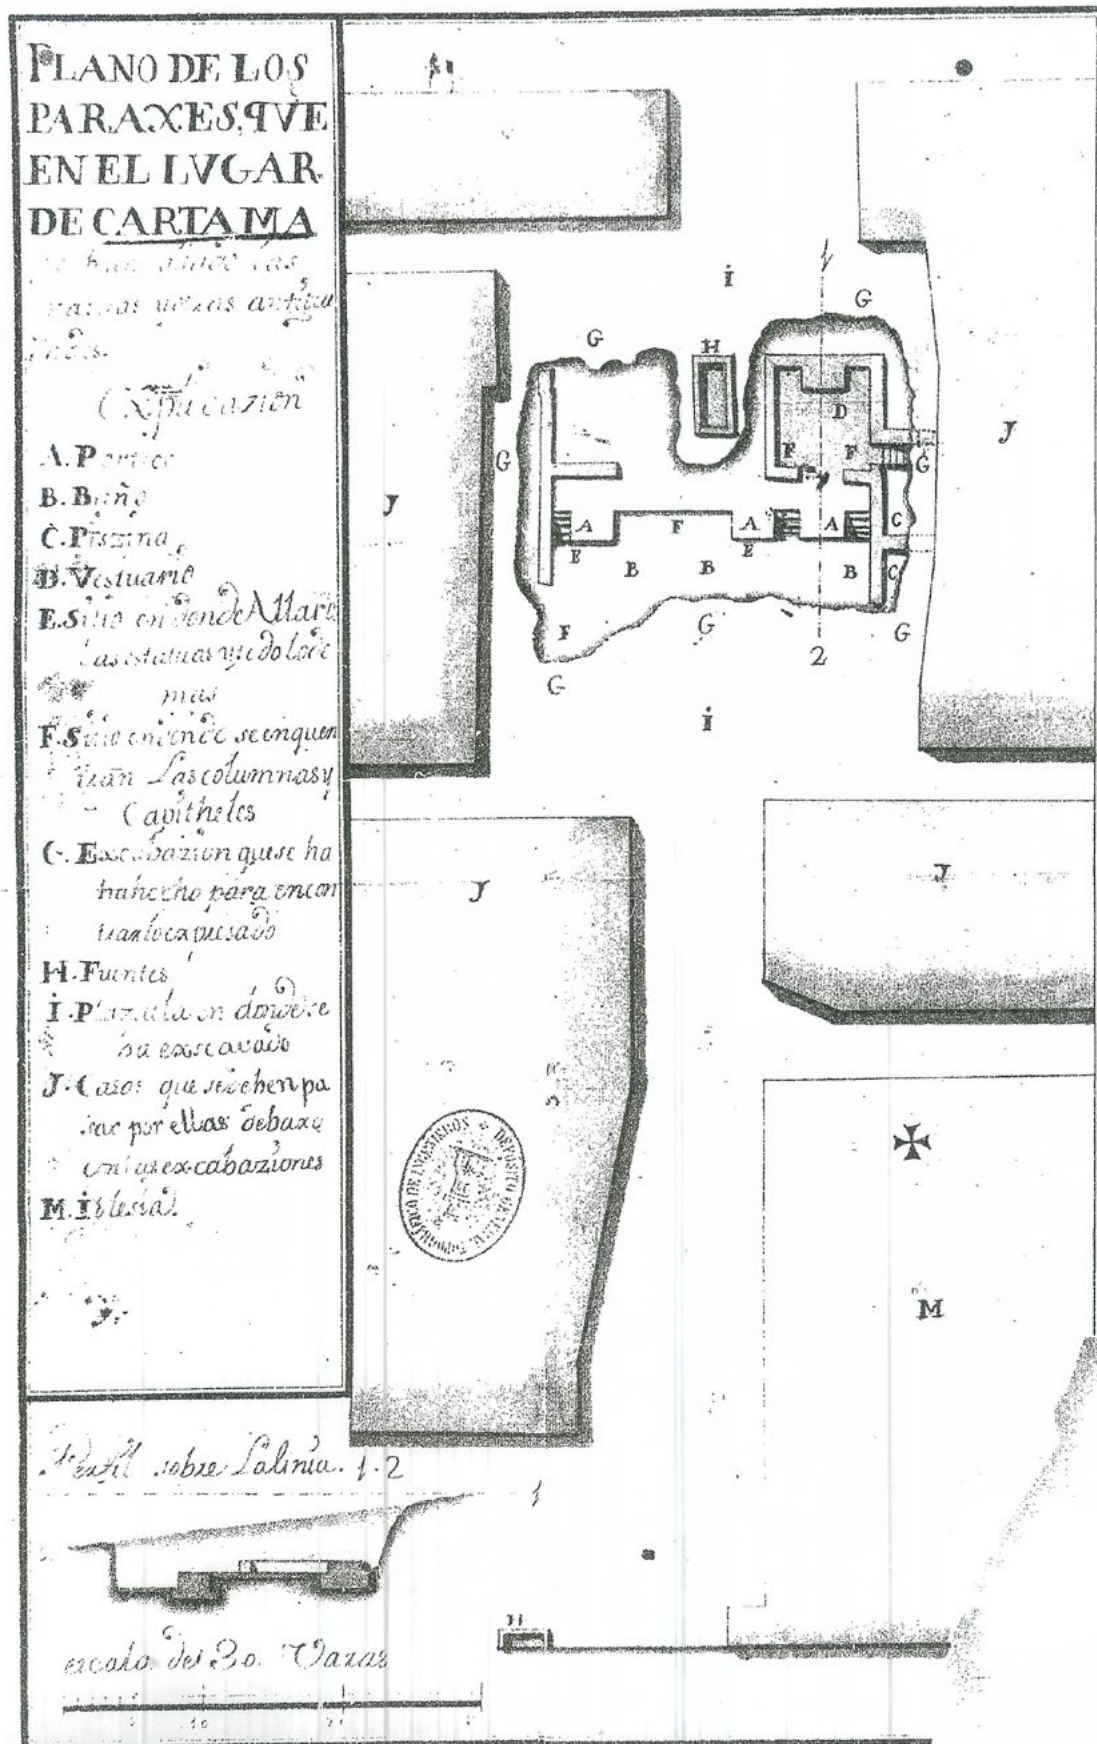 PLANO DE LOS
PARAXES, QVE
EN EL LVGAR
DE CARTAMA
se han
varias antigue
dades.
Expücazion
A. Portico
B. Baño
C. Piszina
D. Vestuario
E. Sitio en donde Allaro
las estatuas y todo lo de
mas
F. Sitio en donde se enquen
tran Las columnas y
Capitheles
G. Excabazion que se ha
ha hecho para encon
trar lo expresado
H. Fuentes
I. Plazuela en donde se
ha excavado
J. Casas que se deben pa
sar por ellas debaxo
con las excabaziones
M. Iglesia
Perfil sobre La linia. 1.2
1
escala de 30. Varas
10
I
1
G
G
H
D
J
J
G
F
F
G
A
F
A
A
C
E
E
B
B
B
C
F
G
G
G
2
I
J
J
DEPOSITO GENERAL TOPOGRÁFICO DE INGENIEROS
M
H